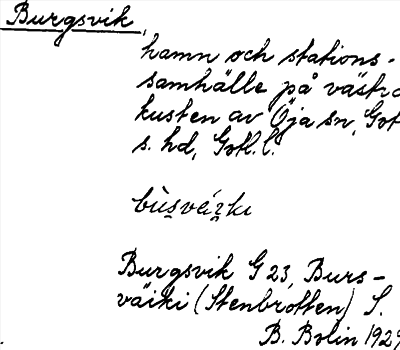 Burgsvik,
hamn och stations-
samhälle på västra
kusten av Öja sn, Got
s. hd, Gotl. l.
Burgsvik G 23, Burs-
väiki (Stenbrotten) S.
B. Bolin 1929